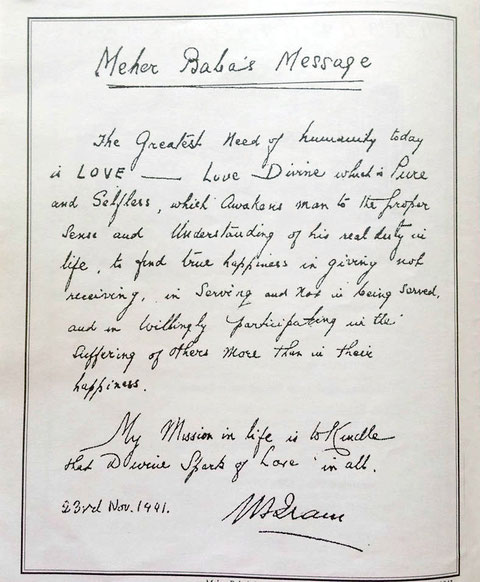 Meher Baba's Message
The Greatest Need of humanity today
is LOVE — Love Divine which is Pure
and Selfless, which Awakens man to the proper
Sense and Understanding of his real duty in
life, to find true happiness in giving not
receiving, in Serving and not in being Served,
and in Willingly participating in the
Suffering of others More than in their
happiness.
My Mission in life is to Kindle
that Divine Spark of Love in all.
23rd Nov. 1941.